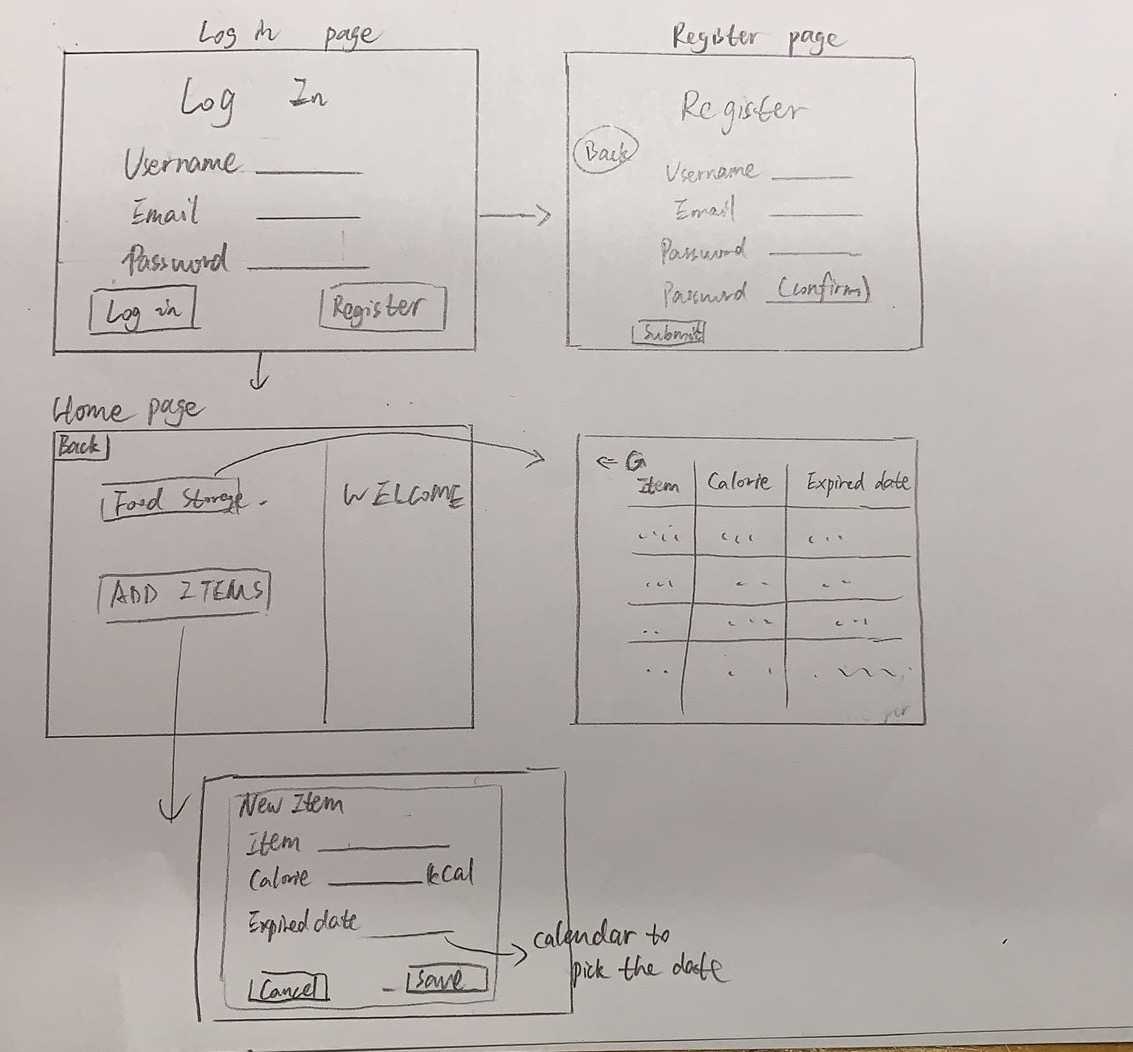 Log in page
Log In
Username
Email
Password
Log in
Register
Register page
Register
Back
Username
Email
Password
Password (confirm)
Submit
Home page
Back
Food Storage
ADD ITEMS
WELCOME
Item Calorie Expired date
New Item
Item
Calorie kcal
Expired date
Cancel
Save
calendar to
pick the date